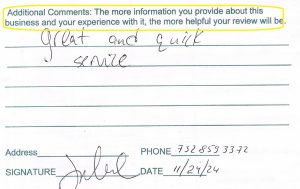 Additional Comments: The more information you provide about this
business and your experience with it, the more helpful your review will be.
Great and quick
service
Address PHONE 732 859 3372
SIGNATURE DATE 11/24/24